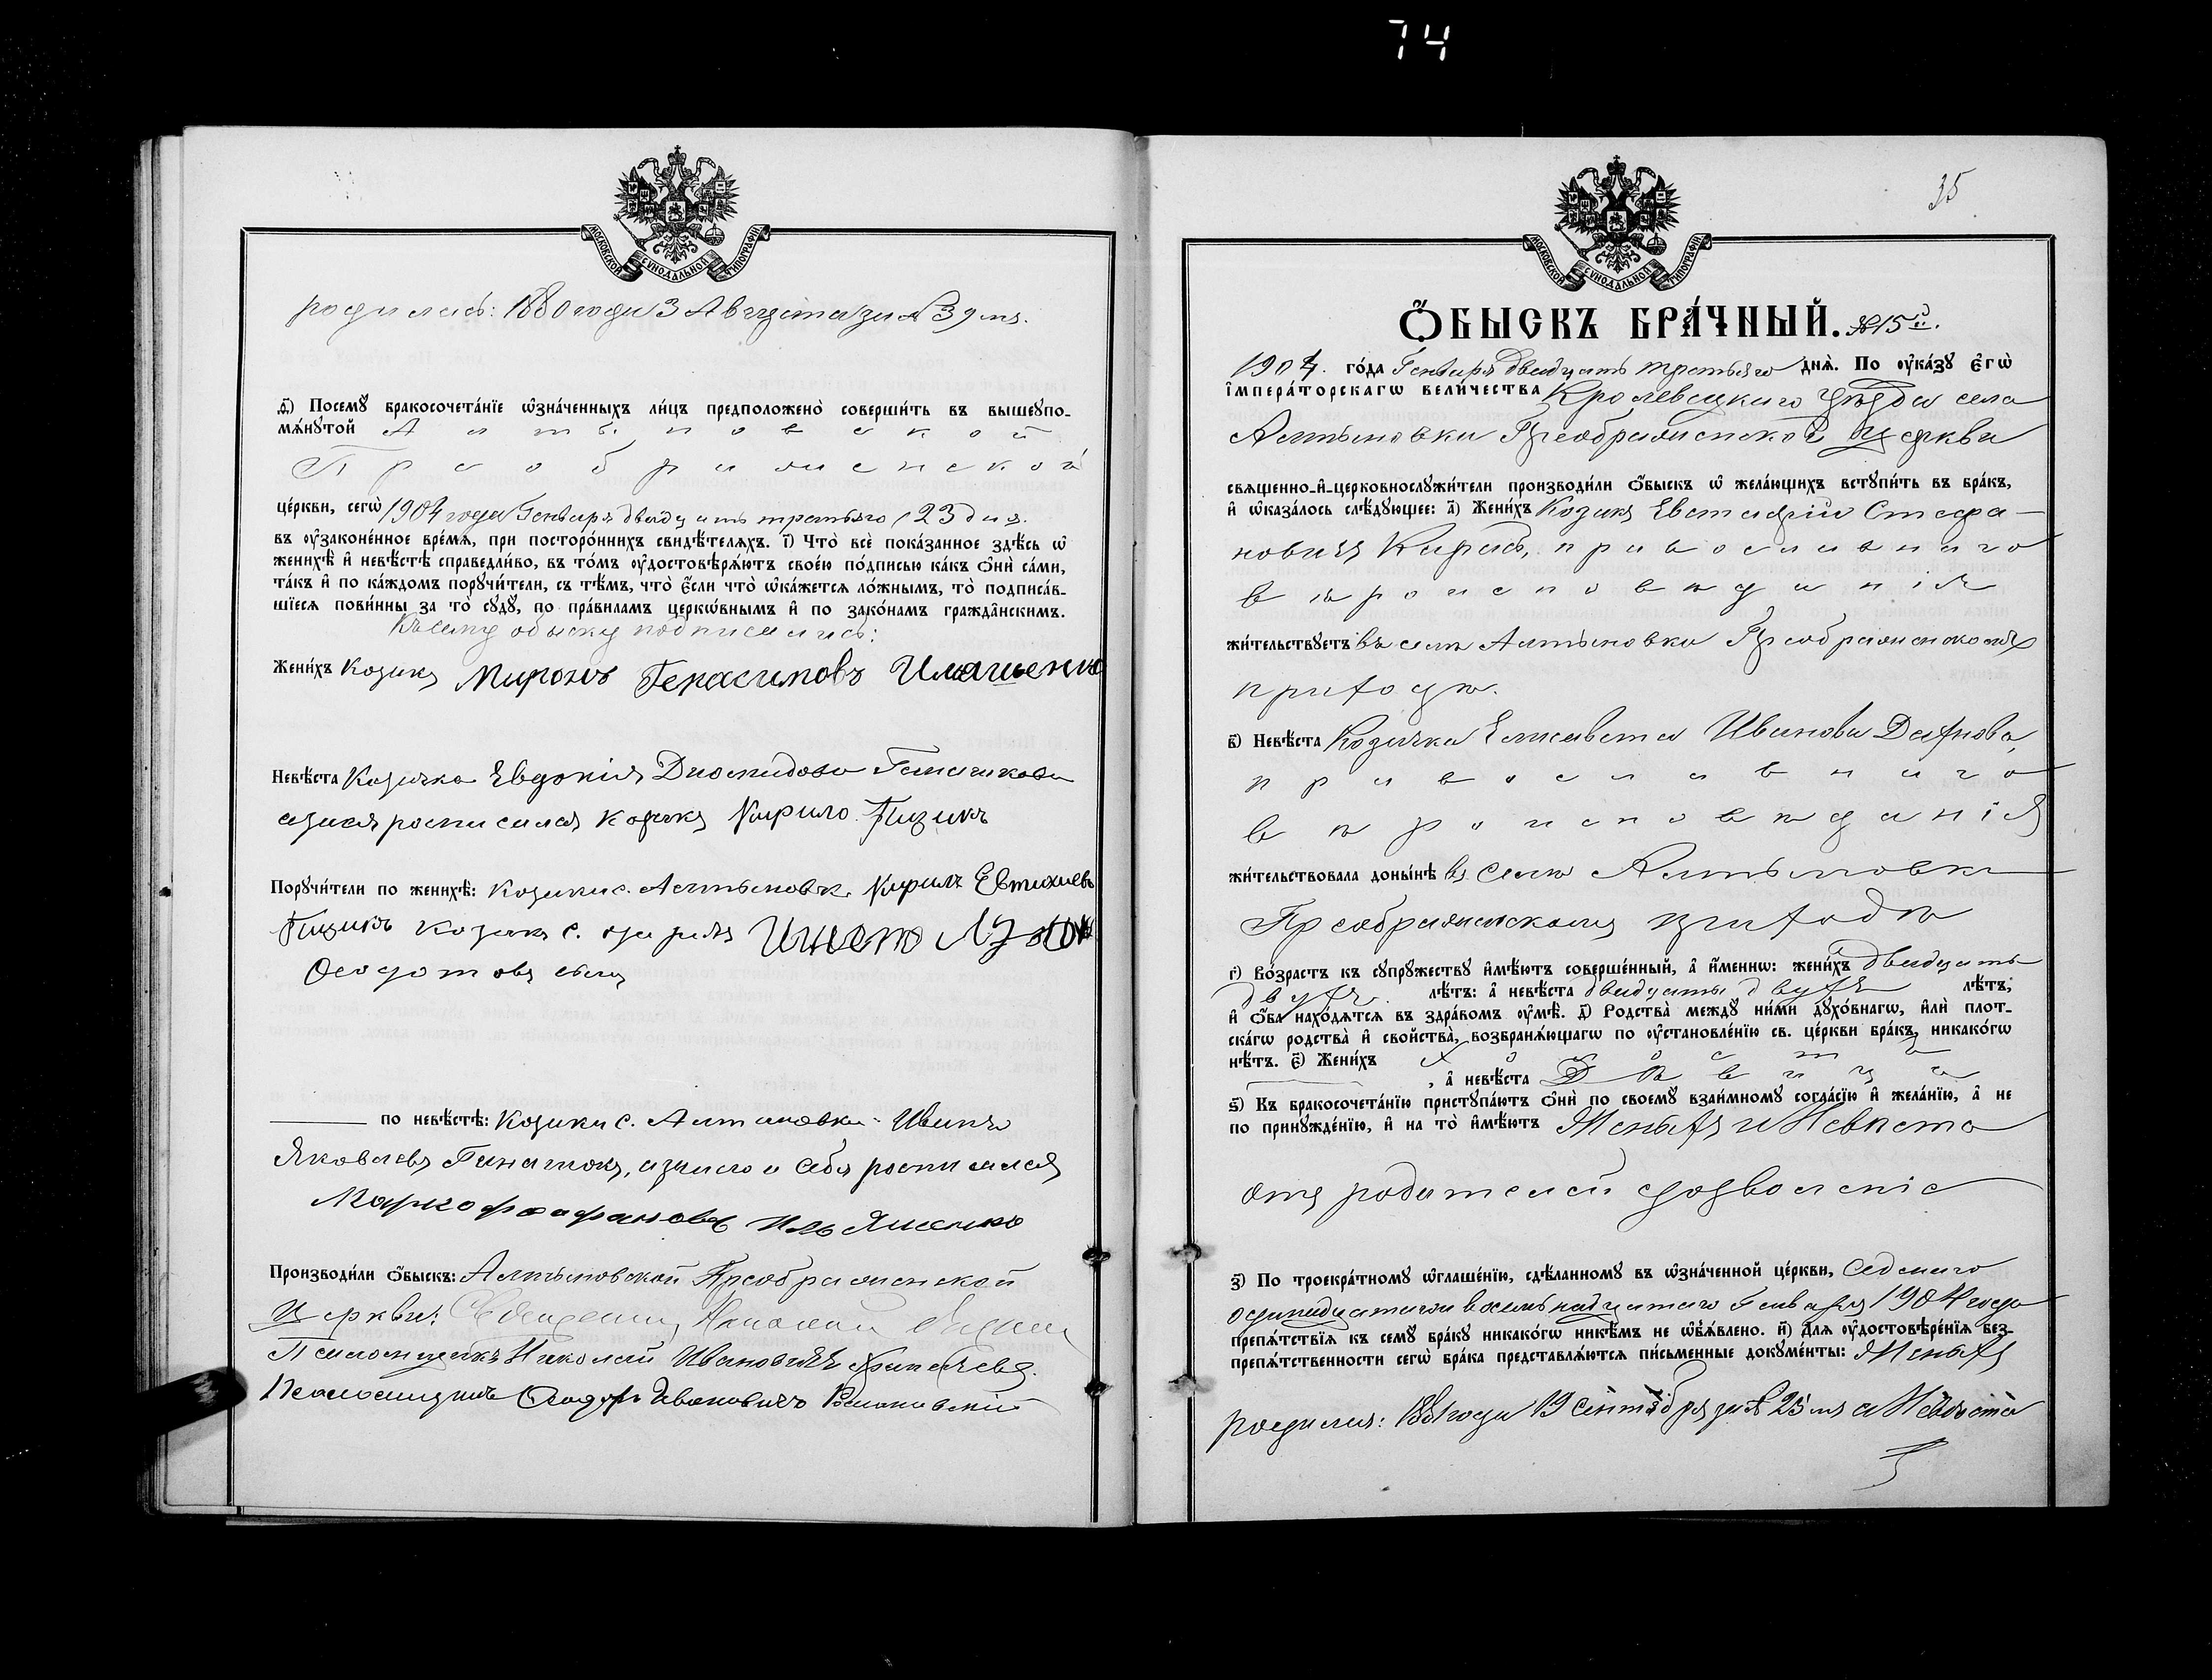 74
МОСКОВСКОЙ СѴНОДАЛЬНОЙ ТИПОГРАФІИ
родилась: 1880 года 3 Августа за № 39мъ.
д҃) Посемꙋ бракосочета́нїе ѡ҆зна́ченныхъ ли́цъ предположено̀ соверши́ть въ вышеꙋпо-
мѧ́нꙋтой Алтыновской
Преображенской
це́ркви, сегѡ̀ 1904 года Генваря двадцать третьяго (23 дня.
въ ᲂу҆зако́ненное вре́мѧ, при посторо́ннихъ свидѣ́телѧхъ. і҃) Что̀ всѐ пока́занное здѣ́сь ѡ҆
женихѣ̀ и҆ невѣ́стѣ справедли́во, въ то́мъ ᲂу҆достовѣрѧ́ютъ свое́ю по́дписью ка́къ ѻ҆нѝ са́ми,
та́къ и҆ по ка́ждомъ порꙋчи́тели, съ тѣ́мъ, что̀ є҆́сли что̀ ѡ҆ка́жетсѧ ло́жнымъ, то̀ подписа́в-
шїесѧ пови́нны за то̀ сꙋдꙋ̀, по пра́виламъ церко́внымъ и҆ по зако́намъ гражда̑нскимъ.
Къ сему обыску подписались:
Жени́хъ Козакъ Миронъ Герасимовъ
Невѣ́ста Козачка Евдокія Диомидова
росписался козакъ Кирило Пизикъ
Порꙋчи́тели по женихѣ̀: Козаки с. Алтыновки Кирилъ Евтихиевъ
Пизикъ козакъ с.
Феодотовъ сынъ
по невѣ́стѣ: Козаки с. Алтыновки Иванъ
Яковлевъ а за него и себя росписался
Марко Феофановъ
Производи́ли ѻ҆́быскъ: Алтыновской Преображенской
Церкви: Священникъ
Псаломщикъ Николай Ивановичъ
Псаломщикъ Феодоръ Ивановичъ
35
МОСКОВСКОЙ СѴНОДАЛЬНОЙ ТИПОГРАФІИ
Ѻ҆́БЫСКЪ БРА́ЧНЫЙ. № 15й.
1904. го́да Генваря двадцать третьяго днѧ̀. По ᲂу҆ка́зꙋ є҆гѡ̀
і҆мпера́торскагѡ вели́чества Кролевецкаго уѣзда села
Алтыновки Преображенской церкви
свѧще́нно-и҆-церковнослꙋжи́тели производи́ли ѻ҆́быскъ ѡ҆ жела́ющихъ встꙋпи́ть въ бра́къ,
и҆ ѡ҆каза́лось слѣ́дꙋющее: а҃) Жени́хъ Козакъ Евстафій Стефа-
новичъ православнаго
вѣроисповѣданія
жи́тельствꙋетъ въ селѣ Алтыновки Преображенскомъ
приходѣ.
в҃) Невѣ́ста Козачка Елисавета Иванова
православнаго
вѣроисповѣданія
жи́тельствовала доны́нѣ въ селѣ Алтыновки
Преображенскомъ приходѣ
г҃) Во́зрастъ къ сꙋпрꙋ́жествꙋ и҆мѣ́ютъ соверше́нный, а҆ и҆́меннѡ: жени́хъ двадцать
двухъ. лѣ́тъ: а҆ невѣ́ста двадцати двухъ лѣ́тъ,
и҆ ѻ҆́ба нахо́дѧтсѧ въ здра́вомъ ᲂу҆мѣ̀. д҃) Родства̀ междꙋ ни́ми дꙋхо́внагѡ, и҆лѝ плот-
ска́гѡ родства̀ и҆ сво́йства̀, возбранѧ́ющагѡ по ᲂу҆становле́нїю св. це́ркви бра́къ, никако́гѡ
нѣ́тъ. є҃) Жени́хъ холостъ
, а҆ невѣ́ста Дѣвица
ѕ҃) Къ бракосочета́нїю пристꙋпа́ютъ ѻ҆нѝ по своемꙋ̀ взаи́мномꙋ согла́сїю и҆ жела́нїю, а҆ не
по принꙋжде́нїю, и҆ на то̀ и҆мѣ́ютъ Женихъ и Невѣста
отъ родителей дозволеніе
з҃) По троекра́тномꙋ ѡ҆глаше́нїю, сдѣ́ланномꙋ въ ѡ҆зна́ченной це́ркви, седьмаго
одинадцатаго и восемьнадцатаго Генваря 1904 года
препѧ́тствїѧ къ семꙋ̀ бра́кꙋ никако́гѡ никѣ́мъ не ѡ҆б̾ѧ́влено. и҃) Длѧ ᲂу҆достовѣре́нїѧ без-
препѧ́тственности сегѡ̀ бра́ка представлѧ́ютсѧ пи́сьменные докꙋме́нты: Женихъ
родился: 1881 года 19 Сентября за № 25мъ а Невѣста